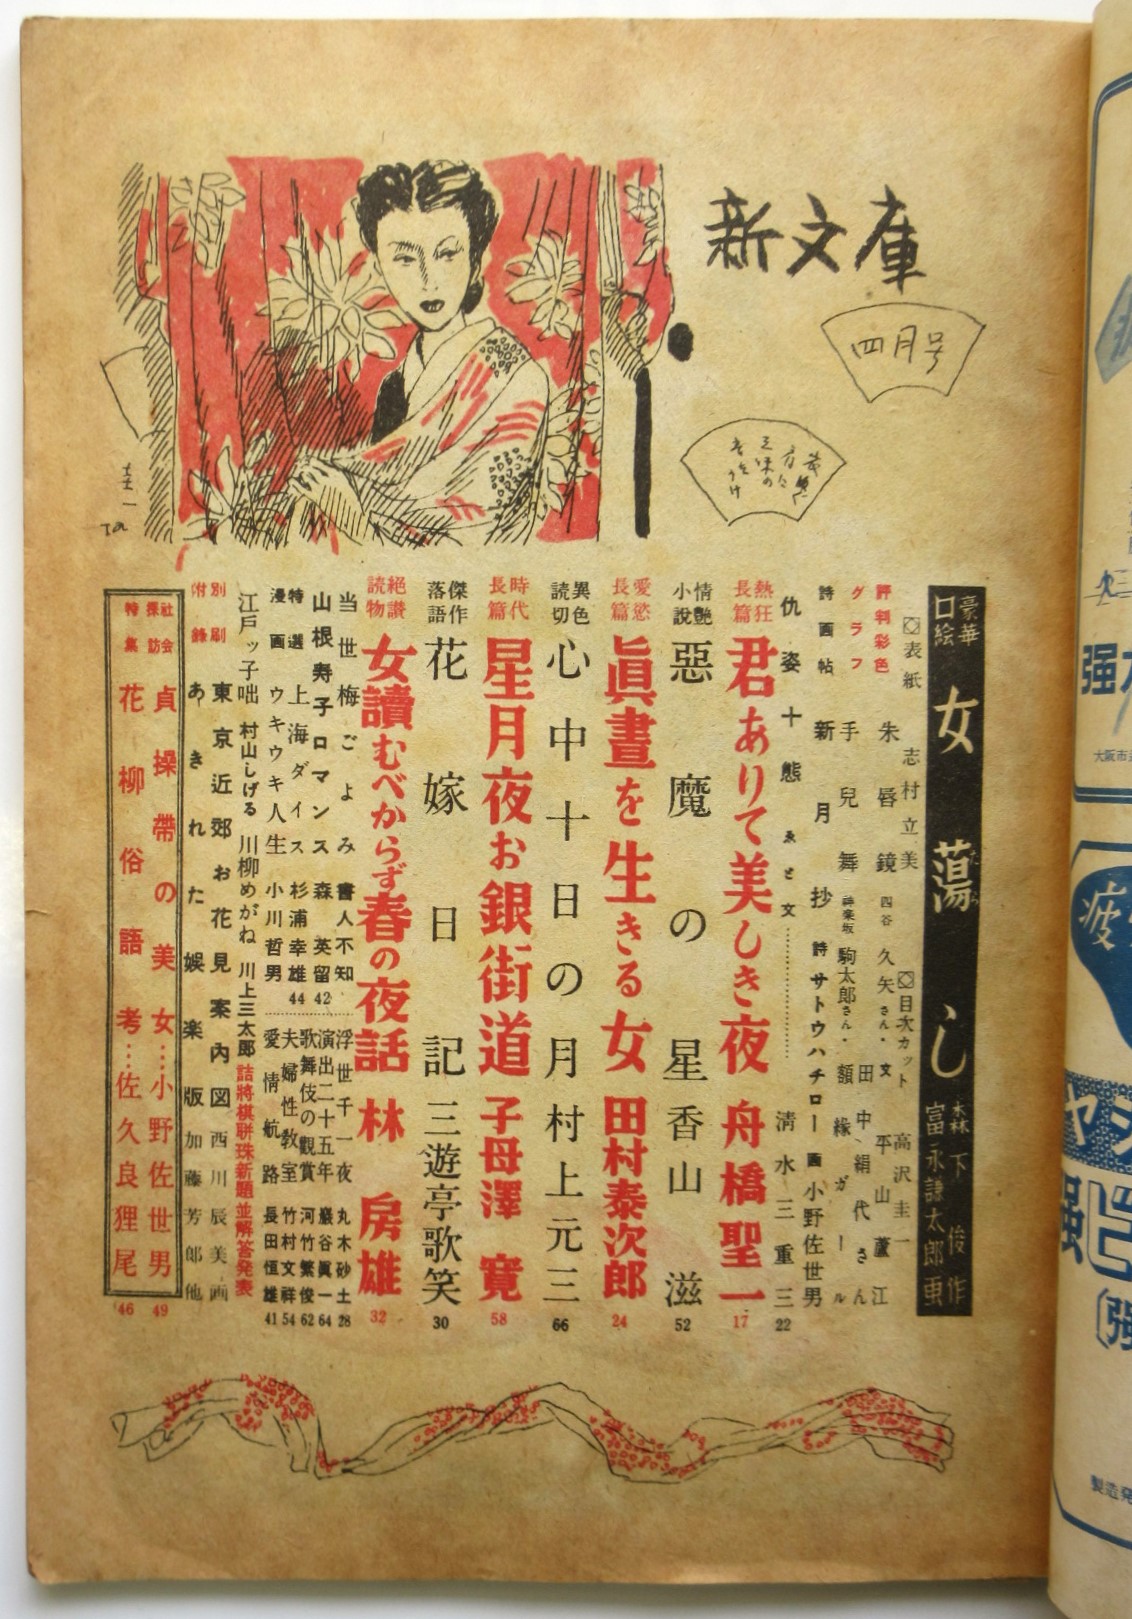 新文庫
四月号
豪華口絵 女蕩し 森下俊作 富永謙太郎画
たら
表紙 志村立美 目次カット 高沢圭一
評判彩色 朱唇鏡 四谷 久矢さん・文 平山蘆江
グラフ 手兒舞 神楽坂 駒太郎さん・田中絹代さん
額縁ガール
詩画帖 新月抄 詩 サトウハチロー 画 小野佐世男
仇姿十態 ゑと文 清水三重三 22
熱狂長篇 君ありて美しき夜 舟橋聖一 17
情艶小說 惡魔の星 香山滋 52
愛慾長篇 眞晝を生きる女 田村泰次郎 24
異色読切 心中十日の月 村上元三 66
時代長篇 星月夜お銀街道 子母澤寛 58
傑作落語 花嫁日記 三遊亭歌笑 30
絕讃読物 女讀むべからず春の夜話 林房雄 32
当世梅ごよみ 書人不知
浮世千一夜 丸木砂土 28
山根寿子ロマンス 森英留 42
演出二十五年 巖谷眞一 64
歌舞伎の観賞 河竹繁俊 62
特選漫画 上海ダイス 杉浦幸雄 44
夫婦性教室 竹村文祥 54
ウキウキ人生 小川哲男
愛情航路 長田恒雄 41
江戸ッ子咄 村山しげる 川柳めがね 川上三太郎 詰將棋聯珠新題並解答発表
別刷附錄 東京近郊お花見案内図 西川辰美画
あきれた娯楽版 加藤芳郎他
社会探訪 貞操帶の美女…小野佐世男 49
特集 花柳俗語考…佐久良狸尾 46
圭一
强力
大阪市
疲
製造発